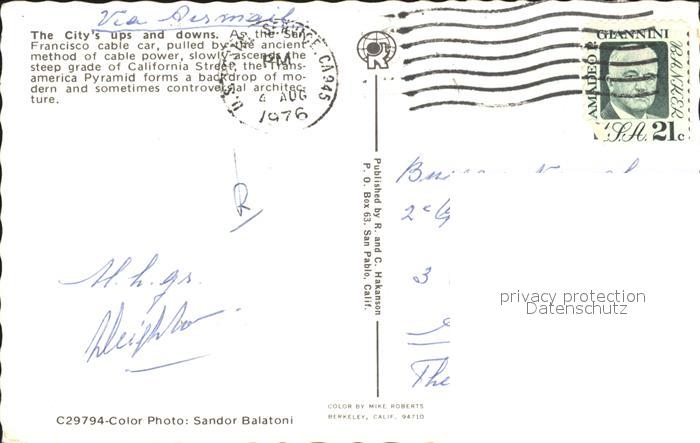 Via Airmail
The City's ups and downs. As the San
Francisco cable car, pulled by the ancient
method of cable power, slowly ascends the
steep grade of California Street, the Trans-
america Pyramid forms a backdrop of mo-
dern and sometimes controversial architec-
ture.
CA 945
PM
4 AUG
1976
AMADEO P. GIANNINI
BANKER
USA 21c
R
H.h.gs.
Published by R. and C. Hakanson
P. O. Box 63, San Pablo, Calif.
2e
3
The
privacy protection
Datenschutz
C29794-Color Photo: Sandor Balatoni
COLOR BY MIKE ROBERTS
BERKELEY, CALIF. 94710